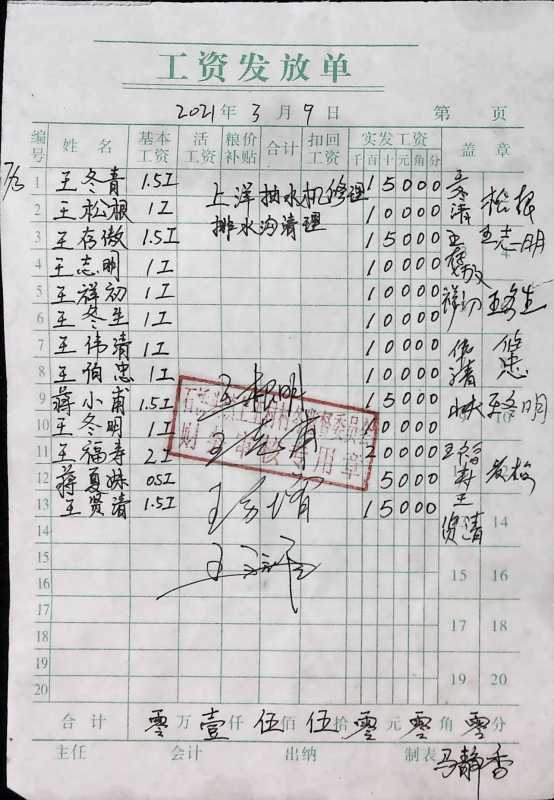 工资发放单
2021年3月9日 第 页
编号 姓名 基本工资 活工资 粮价补贴 合计 扣回工资 实发工资 盖章
千百十元角分
1 王冬青 1.5工 上洋抽水机修理 15000
2 王松根 1工 排水沟清理 10000 松根
3 王存傲 1.5工 15000 王志明
4 王志明 1工 10000
5 王祥初 1工 10000 祥初
6 王冬生 1工 10000 王冬生
7 王伟清 1工 10000 伟清
8 王伯忠 1工 10000 伯忠
9 蒋小甫 1.5工 15000
10 王冬明 1工 10000 王冬明
11 王福寿 2工 20000 王福寿
12 蒋夏妹 05工 5000
13 王贤清 1.5工 15000 王贤清
14 14
15 15 16
16
17 17 18
18
19 19 20
20
财务审核专用章
合计 零万壹仟伍佰伍拾零元零角零分
主任 会计 出纳 制表 马静香